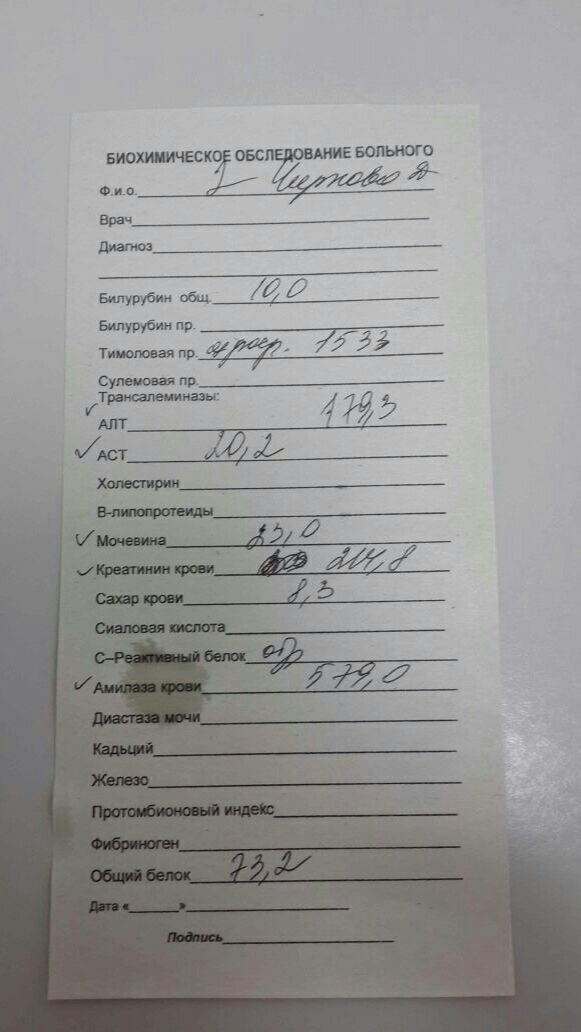 БИОХИМИЧЕСКОЕ ОБСЛЕДОВАНИЕ БОЛЬНОГО
Ф.и.о.
Врач
Диагноз
Билурубин общ. 10,0
Билурубин пр.
Тимоловая пр. 1533
Сулемовая пр.
Трансалеминазы:
АЛТ 179,3
АСТ 20,2
Холестирин
В-липопротеиды
Мочевина 23,0
Креатинин крови 214,8
Сахар крови 8,3
Сиаловая кислота
С–Реактивный белок отр
Амилаза крови 579,0
Диастаза мочи
Кадьций
Железо
Протомбионовый индекс
Фибриноген
Общий белок 73,2
Дата « »
Подпись